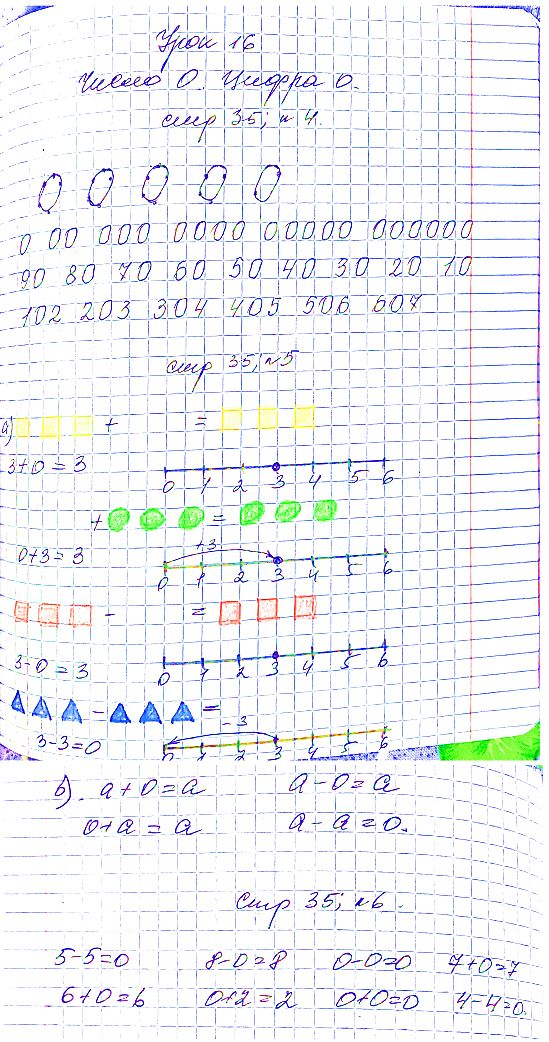 Урок 16
Число 0. Цифра 0.
стр 35; №4.
0 0 0 0 0
0 00 000 0000 00000 000000
90 80 70 60 50 40 30 20 10
102 203 304 405 506 607
стр 35; №5
а) + =
3+0=3
0 1 2 3 4 5 6
+ =
0+3=3
+3
0 1 2 3 4 5 6
- =
3-0=3
0 1 2 3 4 5 6
- =
-3
3-3=0
0 1 2 3 4 5 6
б). a+0=a a-0=a
0+a=a a-a=0.
стр 35; №6.
5-5=0 8-0=8 0-0=0 7+0=7
6+0=6 0+2=2 0+0=0 4-4=0.